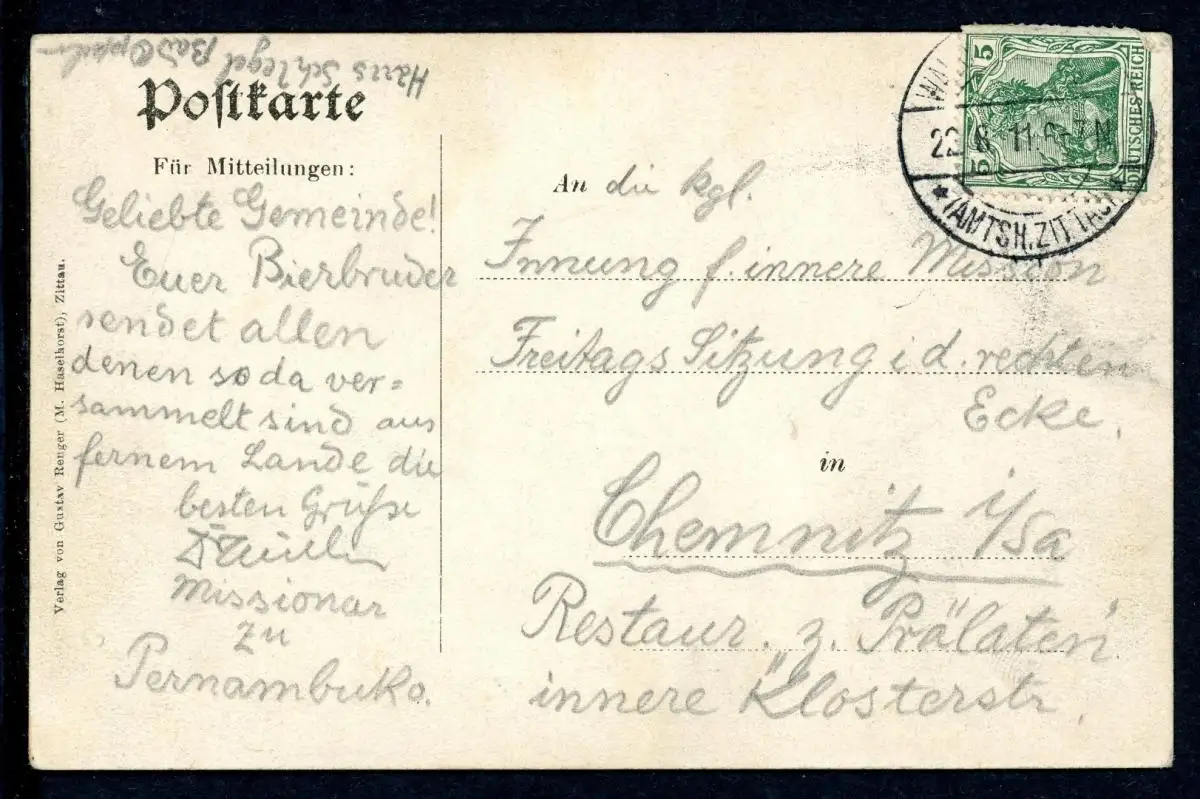 Hans Schlegel Bad
Postkarte
Für Mitteilungen:
Geliebte Gemeinde!
Euer Bierbruder
sendet allen
denen so da ver=
sammelt sind aus
fernem Lande die
besten Grüße
Missionar
zu
Pernambuko.
Verlag von Gustav Renger (M. Haselhorst), Zittau.
An die kgl.
Innung f. innere Mission
Freitags Sitzung i d. rechten
Ecke.
in
Chemnitz i/Sa
Restaur. z. Prälaten
innere Klosterstr
5 5
DEUTSCHES REICH
22 8 11.6-7 N
* (AMTSH. ZITTAU) *